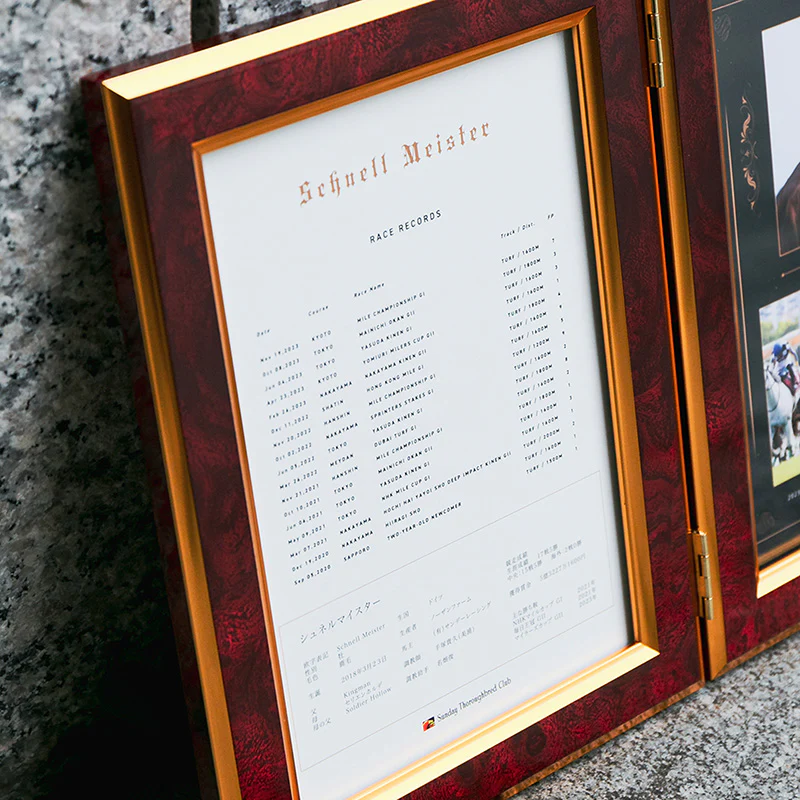 Schnell Meister
RACE RECORDS
Date Course Race Name Track / Dist. FP
Nov 19,2023 KYOTO MILE CHAMPIONSHIP GI TURF / 1600M 7
Oct 08,2023 TOKYO MAINICHI OKAN GII TURF / 1800M 3
Jun 04,2023 TOKYO YASUDA KINEN GI TURF / 1600M 3
Apr 23,2023 KYOTO YOMIURI MILERS CUP GII TURF / 1600M 1
Feb 26,2023 NAKAYAMA NAKAYAMA KINEN GII TURF / 1800M 4
Dec 11,2022 SHATIN HONG KONG MILE GI TURF / 1600M 9
Nov 20,2022 HANSHIN MILE CHAMPIONSHIP GI TURF / 1600M
Oct 02,2022 NAKAYAMA SPRINTERS STAKES GI TURF / 1200M 9
Jun 05,2022 TOKYO YASUDA KINEN GI TURF / 1600M 2
Mar 26,2022 MEYDAN DUBAI TURF GI TURF / 1800M 8
Nov 21,2021 HANSHIN MILE CHAMPIONSHIP GI TURF / 1600M 2
Oct 10,2021 TOKYO MAINICHI OKAN GII TURF / 1800M 1
Jun 06,2021 TOKYO YASUDA KINEN GI TURF / 1600M 3
May 09,2021 TOKYO NHK MILE CUP GI TURF / 1600M 1
Mar 07,2021 NAKAYAMA HOCHI HAI YAYOI SHO DEEP IMPACT KINEN GII TURF / 2000M 2
Dec 19,2020 NAKAYAMA HIIRAGI SHO TURF / 1600M 1
Sep 05,2020 SAPPORO TWO YEAR-OLD NEWCOMER TURF / 1500M 1
シュネルマイスター
欧字表記 Schnell Meister 生国 ドイツ
性別 牡 生産者 ノーザンファーム
毛色 鹿毛 馬主 (有)サンデーレーシング
生誕 2018年3月23日 調教師 手塚貴久(美浦)
父 Kingman 調教助手
母 セリエンホルデ
母の父 Soldier Hollow
競走成績 17戦5勝
生涯成績
獲得賞金
主な勝ち鞍
NHKマイルカップ GI 2021年
毎日王冠 GII 2021年
マイラーズカップ GII 2023年
Sunday Thoroughbred Club